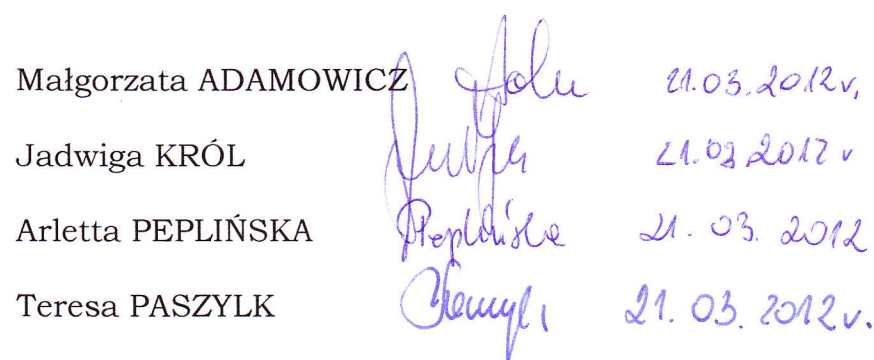 Małgorzata ADAMOWICZ 21.03.2012r.
Jadwiga KRÓL 21.03.2012 r
Arletta PEPLIŃSKA APeplińska 21.03.2012
Teresa PASZYLK 21.03.2012r.